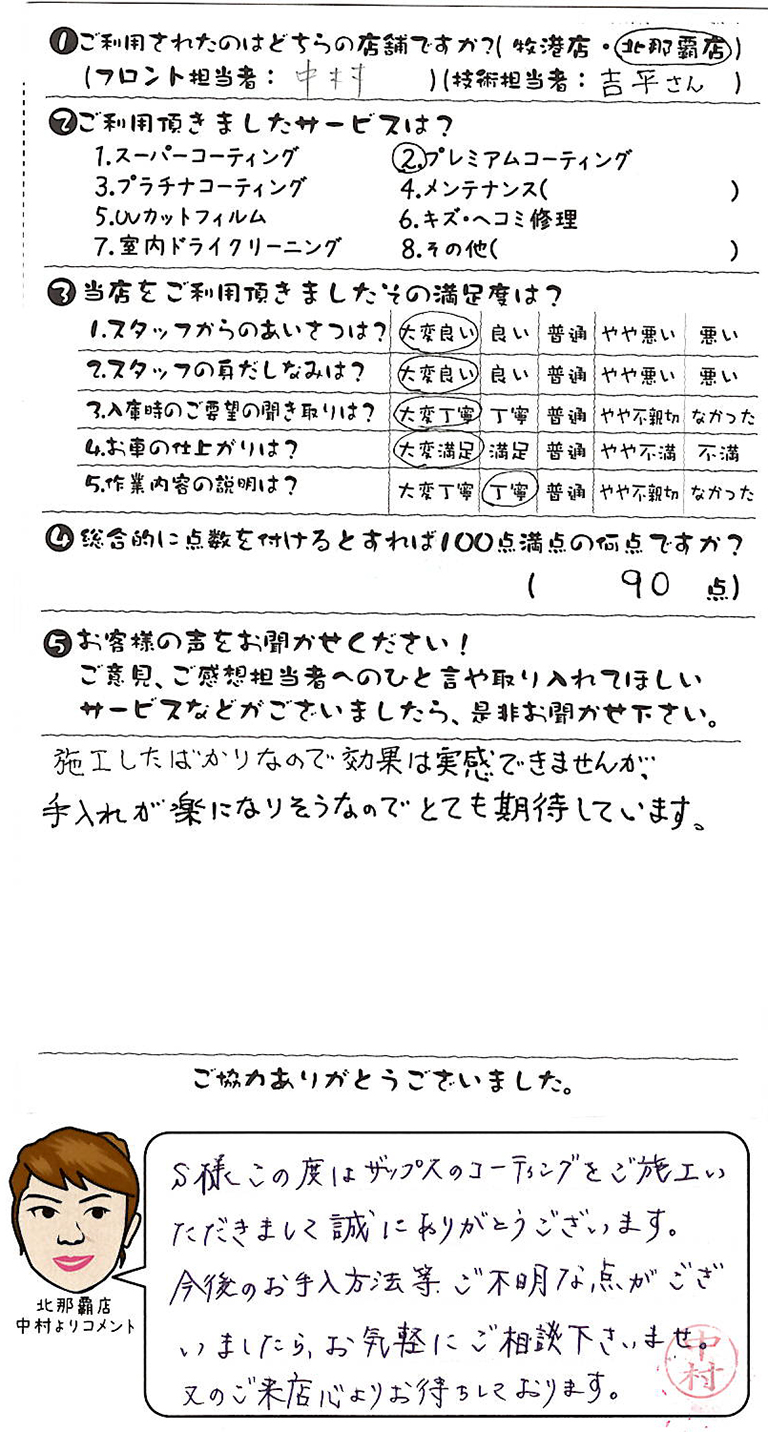 ❶ご利用されたのはどちらの店舗ですか?(牧港店・北那覇店)
(フロント担当者: 中村 )(技術担当者: 吉平さん )
❷ご利用頂きましたサービスは?
1.スーパーコーティング 2.プレミアムコーティング
3.プラチナコーティング 4.メンテナンス( )
5.UVカットフィルム 6.キズ・ヘコミ修理
7.室内ドライクリーニング 8.その他( )
❸当店をご利用頂きましたその満足度は?
1.スタッフからのあいさつは? 大変良い 良い 普通 やや悪い 悪い
2.スタッフの身だしなみは? 大変良い 良い 普通 やや悪い 悪い
3.入庫時のご要望の聞き取りは? 大変丁寧 丁寧 普通 やや不親切 なかった
4.お車の仕上がりは? 大変満足 満足 普通 やや不満 不満
5.作業内容の説明は? 大変丁寧 丁寧 普通 やや不親切 なかった
❹総合的に点数を付けるとすれば100点満点の何点ですか?
( 90 点)
❺お客様の声をお聞かせください!
ご意見、ご感想担当者へのひと言や取り入れてほしい
サービスなどがございましたら、是非お聞かせ下さい。
施工したばかりなので効果は実感できませんが、
手入れが楽になりそうなのでとても期待しています。
ご協力ありがとうございました。
S様この度はザップスのコーティングをご施工い
ただきまして誠にありがとうございます。
今後のお手入方法等、ご不明な点がござ
いましたら、お気軽にご相談下さいませ。
又のご来店心よりお待ちしております。
中村
北那覇店
中村よりコメント